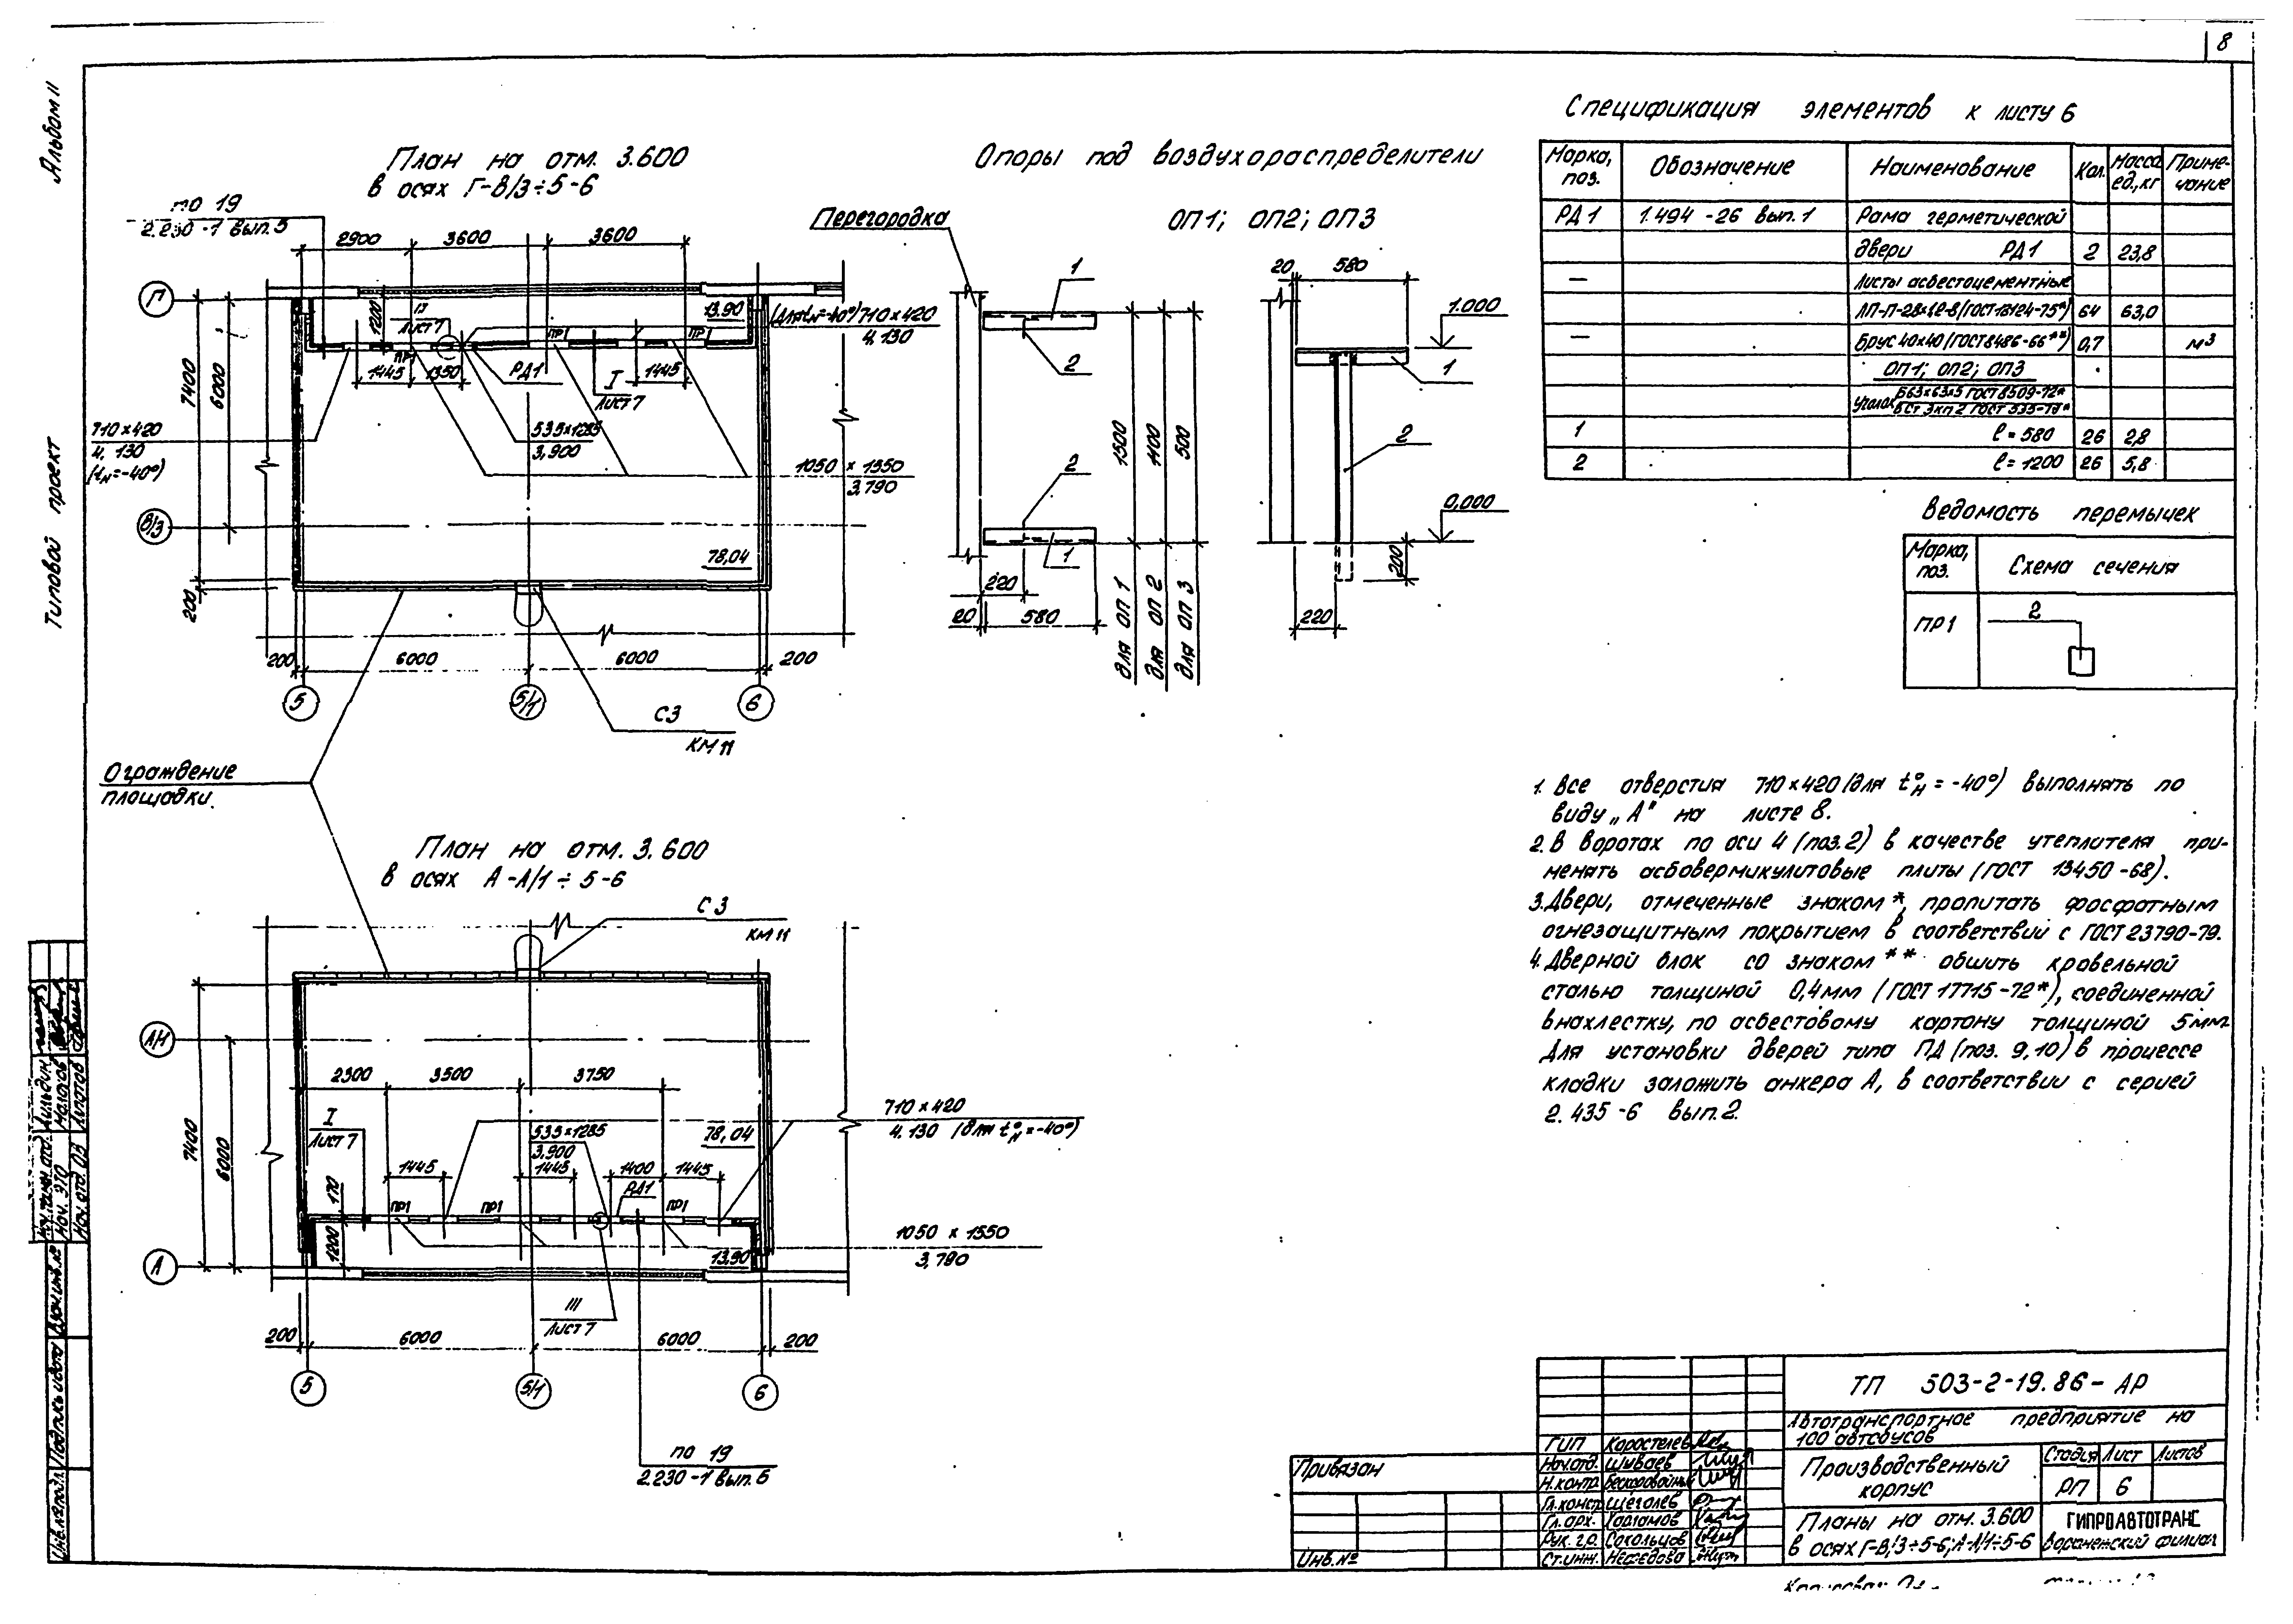 8
Альбом II
Типовой проект
План на отм. 3.600
в осях Г-В/3÷5-6
по 19
2.230-1 вып.5
2900
3600
3600
Г
1200
II
Лист 7
13.90
710×420
4.130
ПР1
ПР1
ПР1
1445
1350
РД1
I
Лист 7
1445
7400
6000
710×420
4.130
(tн=-40°)
535×1285
3,900
1050×1550
3.790
В/3
78,04
200
200
6000
6000
200
5
5/1
6
С3
КМ11
Ограждение
площадки.
План на отм. 3.600
в осях А-А/1÷5-6
С3
КМ11
А/1
2300
3500
3750
I
Лист 7
710×420
4.130 (для t°н=-40°)
535×1285
3.900
78,04
7400
6000
1445
1445
1400
1445
РД1
170
ПР1
ПР1
ПР1
1200
1050×1550
3,790
13,90
А
III
Лист 7
200
6000
6000
200
5
5/1
6
по 19
2.230-1 вып.5
Опоры под воздухораспределители
Перегородка
ОП1; ОП2; ОП3
1
2
2
1
220
20
580
1500
1400
500
для ОП 1
для ОП 2
для ОП 3
20
580
1.000
1
2
0,000
200
220
Спецификация элементов к листу 6
Марка, поз.
Обозначение
Наименование
Кол.
Масса ед.,кг
Приме-чание
РД1
1.494-26 вып.1
Рама герметической
двери РД1
2
23,8
—
Листы асбестоцементные
64
63,0
—
Брус 40×40 (ГОСТ 8486-66**)
0,7
м3
ОП1; ОП2; ОП3
Уголок Б63×63×5 ГОСТ 8509-72*
1
ℓ=580
26
2,8
2
ℓ=1200
26
5,8
Ведомость перемычек
Марка, поз.
Схема сечения
ПР1
2
1. Все отверстия 710×420 (для t°н=-40°) выполнять по
виду „А" на листе 8.
2. В воротах по оси 4 (поз.2) в качестве утеплителя при-
менять асбовермикулитовые плиты (ГОСТ 13450-68).
3. Двери, отмеченные знаком *, пропитать фосфатным
огнезащитным покрытием в соответствии с ГОСТ 23790-79.
4. Дверной блок со знаком ** обшить кровельной
сталью толщиной 0,4мм (ГОСТ 17715-72*), соединенной
внахлестку, по асбестовому картону толщиной 5мм.
Для установки дверей типа ПД (поз. 9,10) в процессе
кладки заложить анкера А, в соответствии с серией
2.435-6 вып.2.
ТП 503-2-19.86-АР
Автотранспортное предприятие на
100 автобусов
ГИП Коростелев
Нач.отд. Шуваев
Н.контр.
Гл.констр. Щеголев
Гл.арх.
Рук.гр. Сокольцов
Ст.инж. Нефедова
Производственный
корпус
Стадия
Лист
Листов
РП
6
Планы на отм. 3.600
в осях Г-В/3÷5-6; А-А/1÷5-6
ГИПРОАВТОТРАНС
Воронежский филиал
Привязан
Инв.№
Нач. ЭТО Малахов
Нач. отд. ОВ
Взам.инв.№
Подпись и дата
Инв.№ подл.